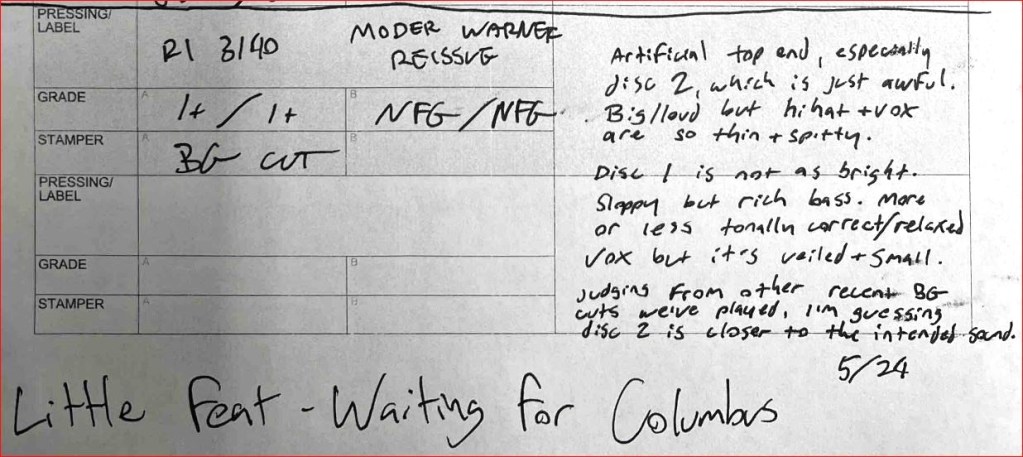 PRESSING/
LABEL
R1 3140
MODER WARNER
REISSUE
GRADE
A
1+ / 1+
B
NFG/NFG
STAMPER
A
BG CUT
B
PRESSING/
LABEL
GRADE
A
B
STAMPER
A
B
Artificial top end, especially
disc 2, which is just awful.
Big/loud but hihat + vox
are so thin + spitty.
Disc 1 is not as bright.
Sloppy but rich bass. More
or less tonally correct/relaxed
vox but it's veiled + small.
Judging from other recent BG
cuts we've played, I'm guessing
disc 2 is closer to the intended sound.
5/24
Little Feat - Waiting for Columbus